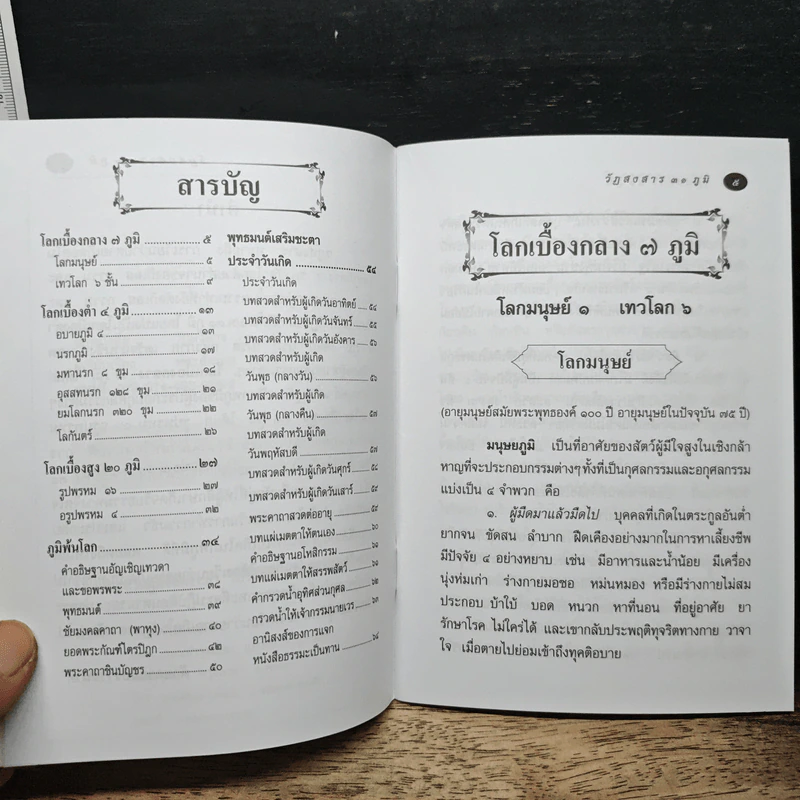 สารบัญ
โลกเบื้องกลาง ๗ ภูมิ ๕
โลกมนุษย์ ๕
เทวโลก ๖ ชั้น ๙
โลกเบื้องต่ำ ๔ ภูมิ ๑๓
อบายภูมิ ๔ ๑๓
นรกภูมิ ๑๗
มหานรก ๘ ขุม ๑๘
อุสสทนรก ๑๒๘ ขุม ๒๑
ยมโลกนรก ๓๒๐ ขุม ๒๒
โลกันตร์ ๒๖
โลกเบื้องสูง ๒๐ ภูมิ ๒๗
รูปพรหม ๑๖ ๒๗
อรูปพรหม ๔ ๓๒
ภูมิพ้นโลก ๓๔
คำอธิษฐานอัญเชิญเทวดา
และขอพรพระ ๓๘
พุทธมนต์ ๓๙
ชัยมงคลคาถา (พาหุง) ๔๐
ยอดพระกัณฑ์ไตรปิฎก ๔๒
พระคาถาชินบัญชร ๕๐
พุทธมนต์เสริมชะตา
ประจำวันเกิด ๕๔
ประจำวันเกิด
บทสวดสำหรับผู้เกิดวันอาทิตย์ ๕๔
บทสวดสำหรับผู้เกิดวันจันทร์ ๕๕
บทสวดสำหรับผู้เกิดวันอังคาร ๕๖
บทสวดสำหรับผู้เกิด
วันพุธ (กลางวัน) ๕๖
บทสวดสำหรับผู้เกิด
วันพุธ (กลางคืน) ๕๗
บทสวดสำหรับผู้เกิด
วันพฤหัสบดี ๕๗
บทสวดสำหรับผู้เกิดวันศุกร์ ๕๘
บทสวดสำหรับผู้เกิดวันเสาร์ ๕๘
พระคาถาสวดต่ออายุ ๕๘
บทแผ่เมตตาให้ตนเอง
คำอธิษฐานอโหสิกรรม
บทแผ่เมตตาให้สรรพสัตว์
คำกรวดน้ำอุทิศส่วนกุศล
กรวดน้ำให้เจ้ากรรมนายเวร
อานิสงส์ของการแจก
หนังสือธรรมะเป็นทาน ๖๔
วัฏสงสาร ๓๑ ภูมิ ๕
โลกเบื้องกลาง ๗ ภูมิ
โลกมนุษย์ ๑ เทวโลก ๖
โลกมนุษย์
(อายุมนุษย์สมัยพระพุทธองค์ ๑๐๐ ปี อายุมนุษย์ในปัจจุบัน ๗๕ ปี)
มนุษยภูมิ เป็นที่อาศัยของสัตว์ผู้มีใจสูงในเชิงกล้า
หาญที่จะประกอบกรรมต่างๆ ทั้งที่เป็นกุศลกรรมและอกุศลกรรม
แบ่งเป็น ๔ จำพวก คือ
๑. ผู้มืดมาแล้วมืดไป บุคคลที่เกิดในตระกูลอันต่ำ
ยากจน ขัดสน ลำบาก ฝืดเคืองอย่างมากในการหาเลี้ยงชีพ
มีปัจจัย ๔ อย่างหยาบ เช่น มีอาหารและน้ำน้อย มีเครื่อง
นุ่งห่มเก่า ร่างกายมอซอ หม่นหมอง หรือมีร่างกายไม่สม
ประกอบ บ้าใบ้ บอด หนวก หาที่นอน ที่อยู่อาศัย ยา
รักษาโรค ไม่ใคร่ได้ และเขากลับประพฤติทุจริตทางกาย วาจา
ใจ เมื่อตายไปย่อมเข้าถึงทุคติอบาย